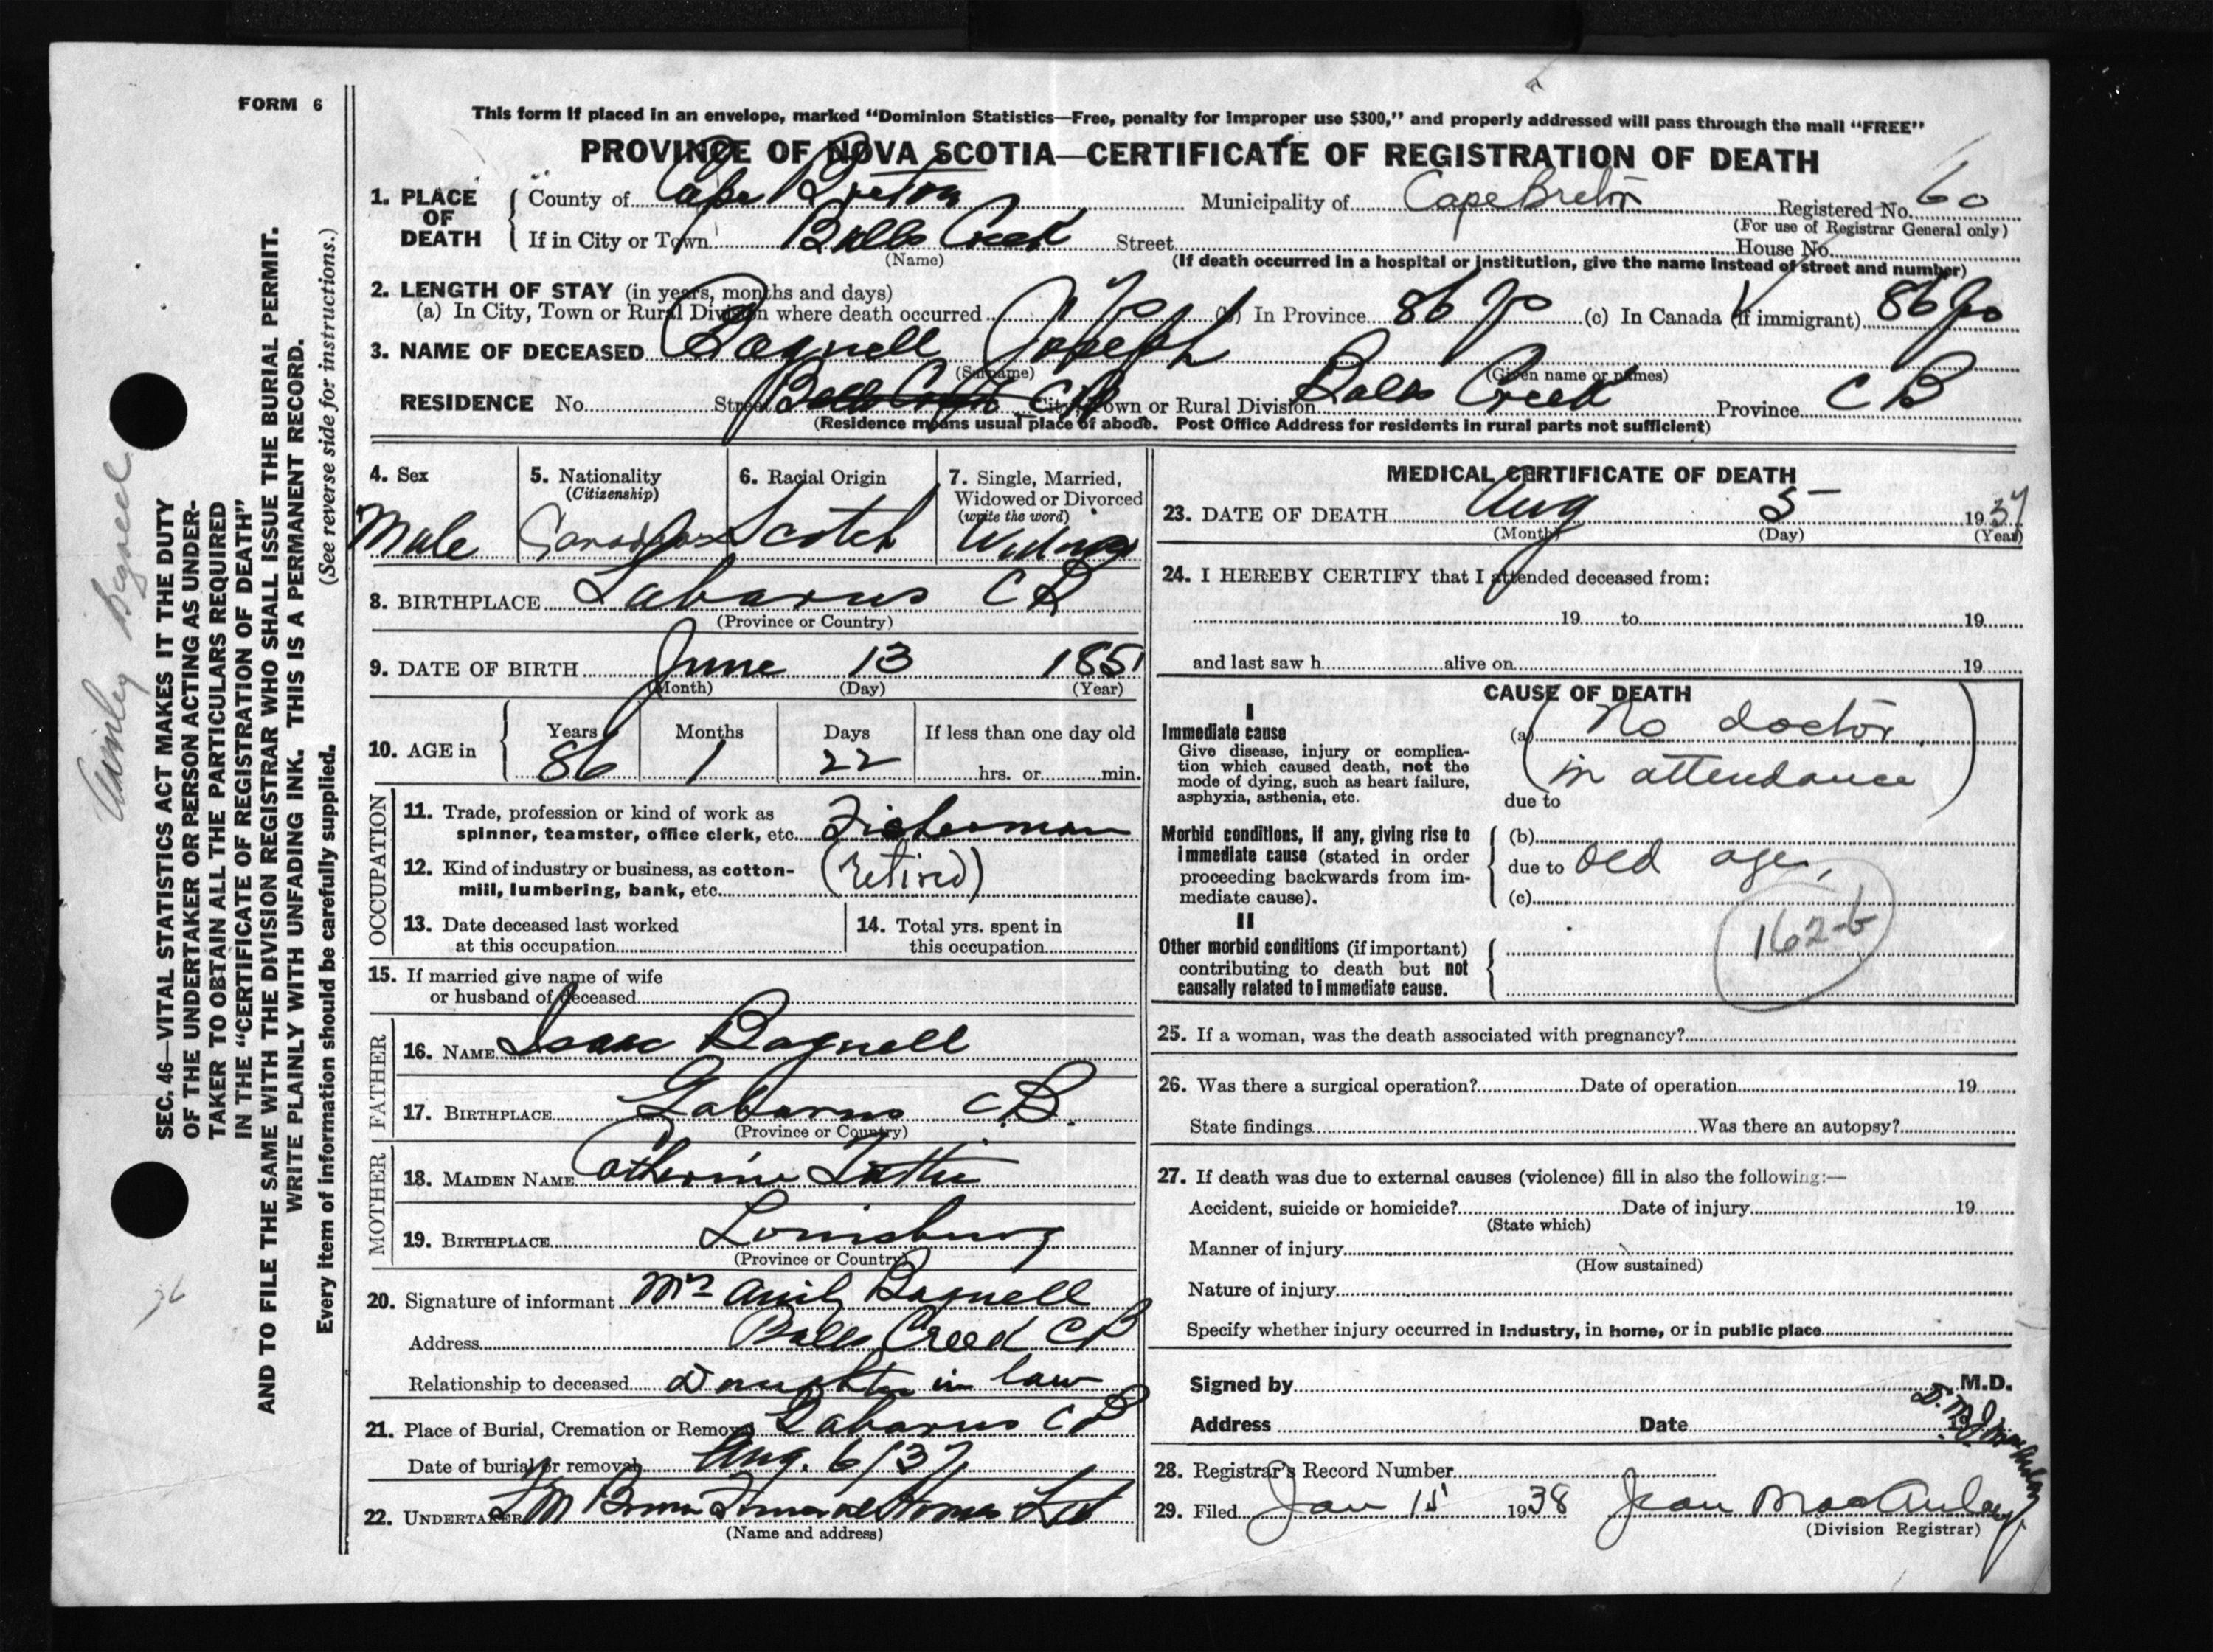 FORM 6
This form if placed in an envelope, marked “Dominion Statistics—Free, penalty for improper use $300,” and properly addressed will pass through the mail “FREE”
PROVINCE OF NOVA SCOTIA—CERTIFICATE OF REGISTRATION OF DEATH
1. PLACE OF DEATH { County of Cape Breton Municipality of Cape Breton Registered No. 60
(For use of Registrar General only)
If in City or Town Balls Creek Street House No.
(Name) (If death occurred in a hospital or institution, give the name instead of street and number)
2. LENGTH OF STAY (in years, months and days)
(a) In City, Town or Rural Division where death occurred (b) In Province 86 (c) In Canada (if immigrant) 86
3. NAME OF DECEASED Bagnell Joseph
(Surname) (Given name or names)
RESIDENCE No. Street City, Town or Rural Division Balls Creek Province C B
(Residence means usual place of abode. Post Office Address for residents in rural parts not sufficient)
4. Sex
Male
5. Nationality
(Citizenship)
Canadian
6. Racial Origin
Scotch
7. Single, Married,
Widowed or Divorced
(write the word)
8. BIRTHPLACE Gabarus C B
(Province or Country)
9. DATE OF BIRTH June 13 1851
(Month) (Day) (Year)
10. AGE in { Years Months Days If less than one day old
86 1 22 hrs. or min.
OCCUPATION
11. Trade, profession or kind of work as
spinner, teamster, office clerk, etc. Fisherman
12. Kind of industry or business, as cotton-
mill, lumbering, bank, etc. (retired)
13. Date deceased last worked
at this occupation
14. Total yrs. spent in
this occupation
15. If married give name of wife
or husband of deceased
FATHER
16. NAME Isaac Bagnell
17. BIRTHPLACE Gabarus C.B.
(Province or Country)
MOTHER
18. MAIDEN NAME Catherine
19. BIRTHPLACE Louisburg
(Province or Country)
20. Signature of informant Mrs Bagnell
Address Balls Creek CB
Relationship to deceased Daughter in law
21. Place of Burial, Cremation or Removal Gabarus CB
Date of burial or removal Aug. 6/37
22. UNDERTAKER Funeral Home Ltd
(Name and address)
MEDICAL CERTIFICATE OF DEATH
23. DATE OF DEATH Aug 5 1937
(Month) (Day) (Year)
24. I HEREBY CERTIFY that I attended deceased from:
19 to 19
and last saw h alive on 19
CAUSE OF DEATH
I
Immediate cause (a) (No doctor
Give disease, injury or complica-
tion which caused death, not the
mode of dying, such as heart failure,
asphyxia, asthenia, etc.
in attendance)
due to
Morbid conditions, if any, giving rise to
immediate cause (stated in order
proceeding backwards from im-
mediate cause).
(b)
due to old age,
(c)
162-b
II
Other morbid conditions (if important)
contributing to death but not
causally related to immediate cause.
25. If a woman, was the death associated with pregnancy?
26. Was there a surgical operation? Date of operation 19
State findings Was there an autopsy?
27. If death was due to external causes (violence) fill in also the following:—
Accident, suicide or homicide? Date of injury 19
(State which)
Manner of injury
(How sustained)
Nature of injury
Specify whether injury occurred in Industry, in home, or in public place
Signed by M.D.
Address Date
28. Registrar's Record Number
29. Filed Jan 15 1938 Jean MacAulay
(Division Registrar)
SEC. 46—VITAL STATISTICS ACT MAKES IT THE DUTY
OF THE UNDERTAKER OR PERSON ACTING AS UNDER-
TAKER TO OBTAIN ALL THE PARTICULARS REQUIRED
IN THE “CERTIFICATE OF REGISTRATION OF DEATH”
AND TO FILE THE SAME WITH THE DIVISION REGISTRAR WHO SHALL ISSUE THE BURIAL PERMIT.
WRITE PLAINLY WITH UNFADING INK. THIS IS A PERMANENT RECORD.
Every item of information should be carefully supplied. (See reverse side for instructions.)